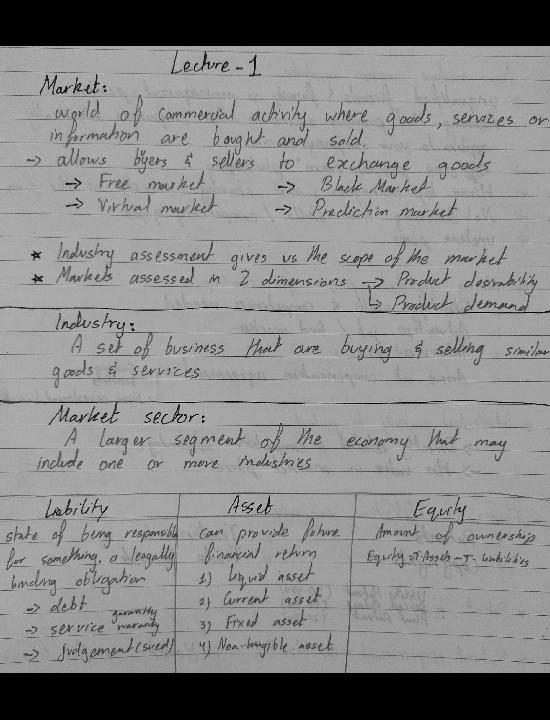 Lecture - 1
Market:
world of commercial activity where goods, services or
information are bought and sold.
→ allows byers & sellers to exchange goods
→ Free market → Black Market
→ Virtual market → Prediction market
★ Industry assessment gives us the scope of the market
★ Markets assessed in 2 dimensions → Product desirability
↳ Product demand
Industry:
A set of business that are buying & selling similar
goods & services
Market sector:
A larger segment of the economy that may
include one or more industries
Liability
state of being responsible
for something, a leagally
binding obligation
→ debt
→ service guaranty warranty
→ judgement (sued)
Asset
can provide future
financial return
1) Liquid asset
2) Current asset
3) Fixed asset
4) Non-tangible asset
Equity
Amount of ownership
Equity = T. Assets - T. Liabilities